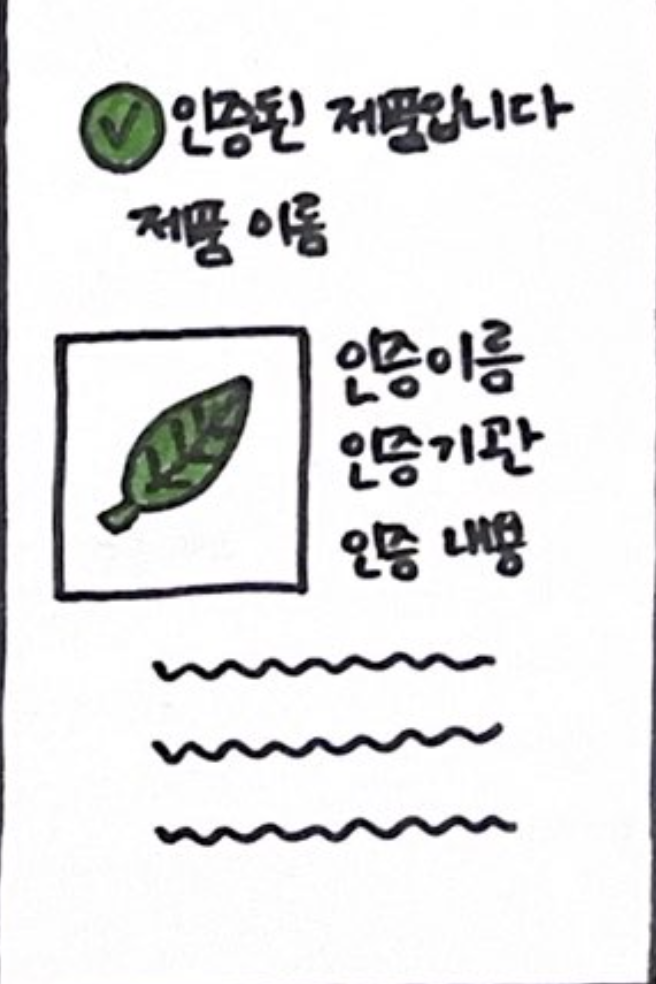 인증된 제품입니다
제품 이름
인증이름
인증기관
인증 내용